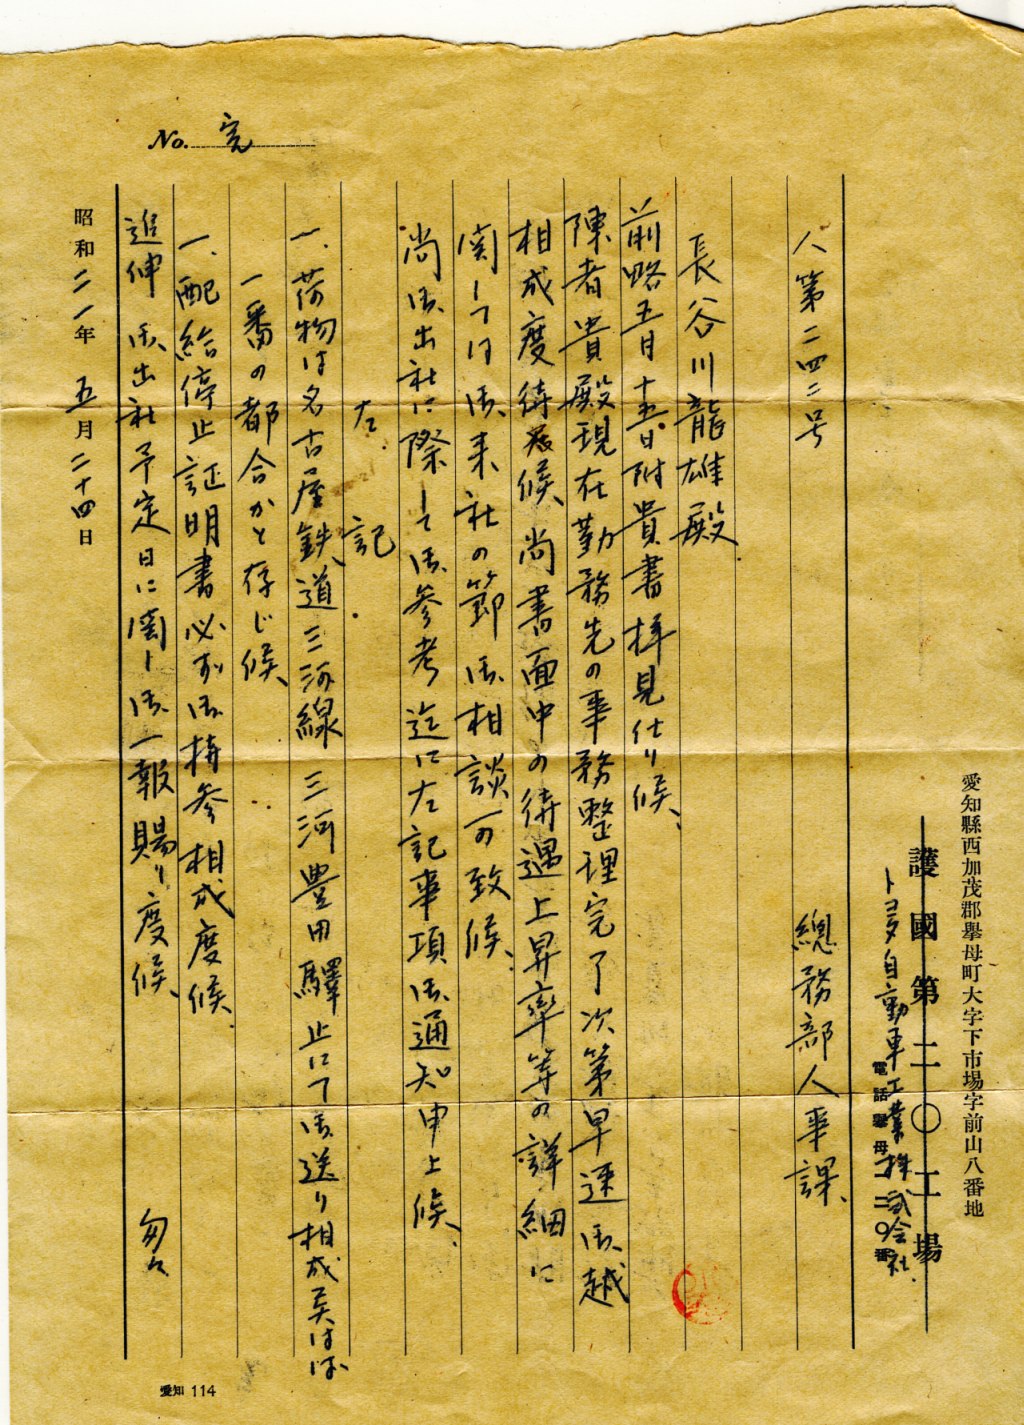 愛知縣西加茂郡擧母町大字下市場字前山八番地
護國第二〇工場
トヨタ自動車工業株式会社
電話擧母一二〇番
人第二四二号
總務部人事課、
長谷川龍雄殿
前略五月十五日附貴書拝見仕り候、
陳者貴殿現在勤務先の事務整理完了次第早速御越
相成度待居候、尚書面中の待遇上昇率等の詳細に
関しては御来社の節御相談可致候、
尚御出社に際して御参考迄に左記事項御通知申上候、
左記
一、荷物は名古屋鉄道三河線 三河豊田驛止にて御送り相成候はば
一番の都合かと存じ候、
一、配給停止証明書必ず御持参相成度候、
追伸 御出社予定日に関し御一報賜り度候、
匆々
昭和二一年 五月二十四日
No.
愛知 114